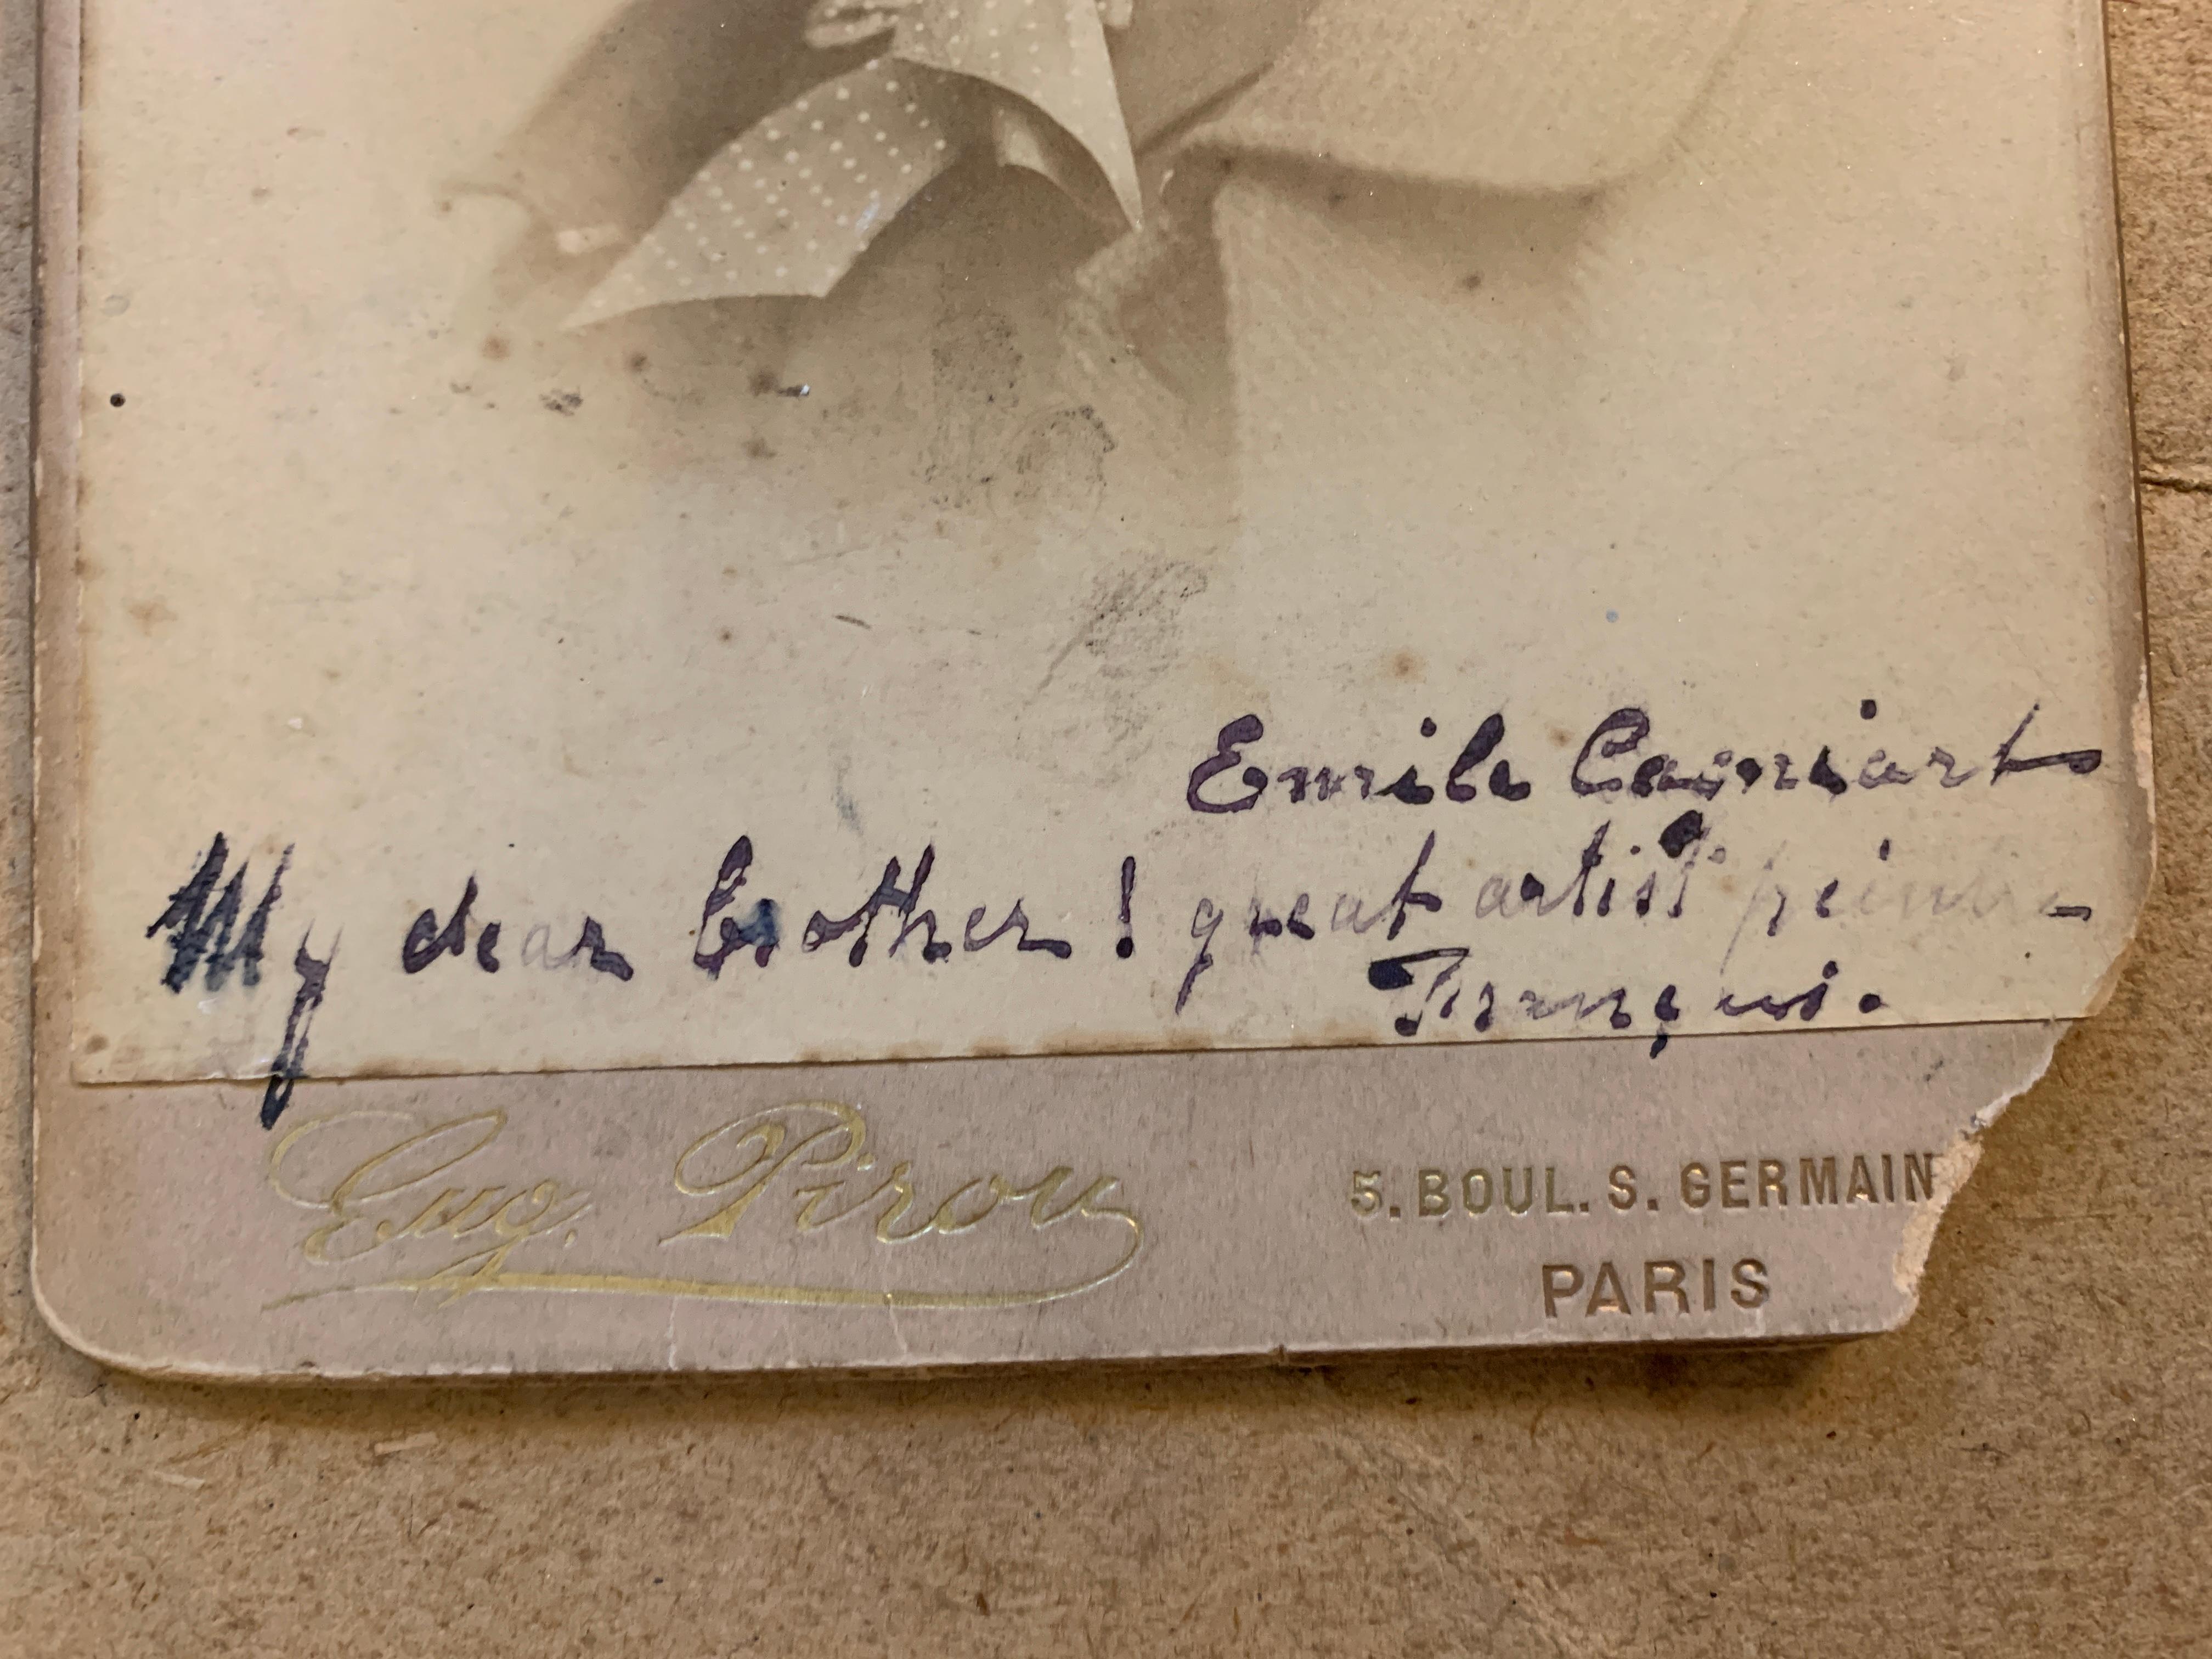 Emile Cagniart
My dear brother ! great artist peintre
Français.
Eug. Pirou
5. BOUL. S. GERMAIN
PARIS